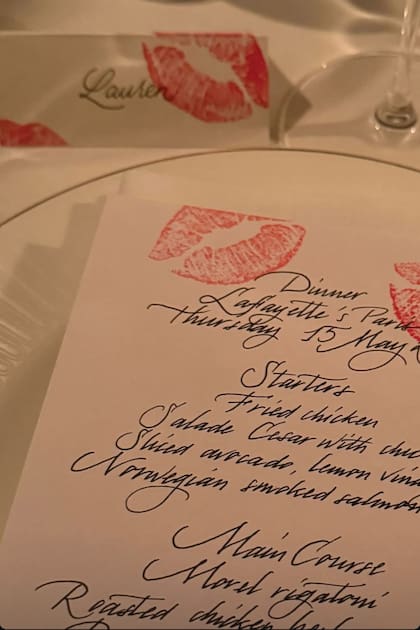 Lauren
Dinner
Laffayette's
Thursday 15 May
Starters
Fried chicken
Salade Cesar with
Sliced avocado, lemon
Norwegian smoked salmon
Main Course
Morel rigatoni
Roasted chicken